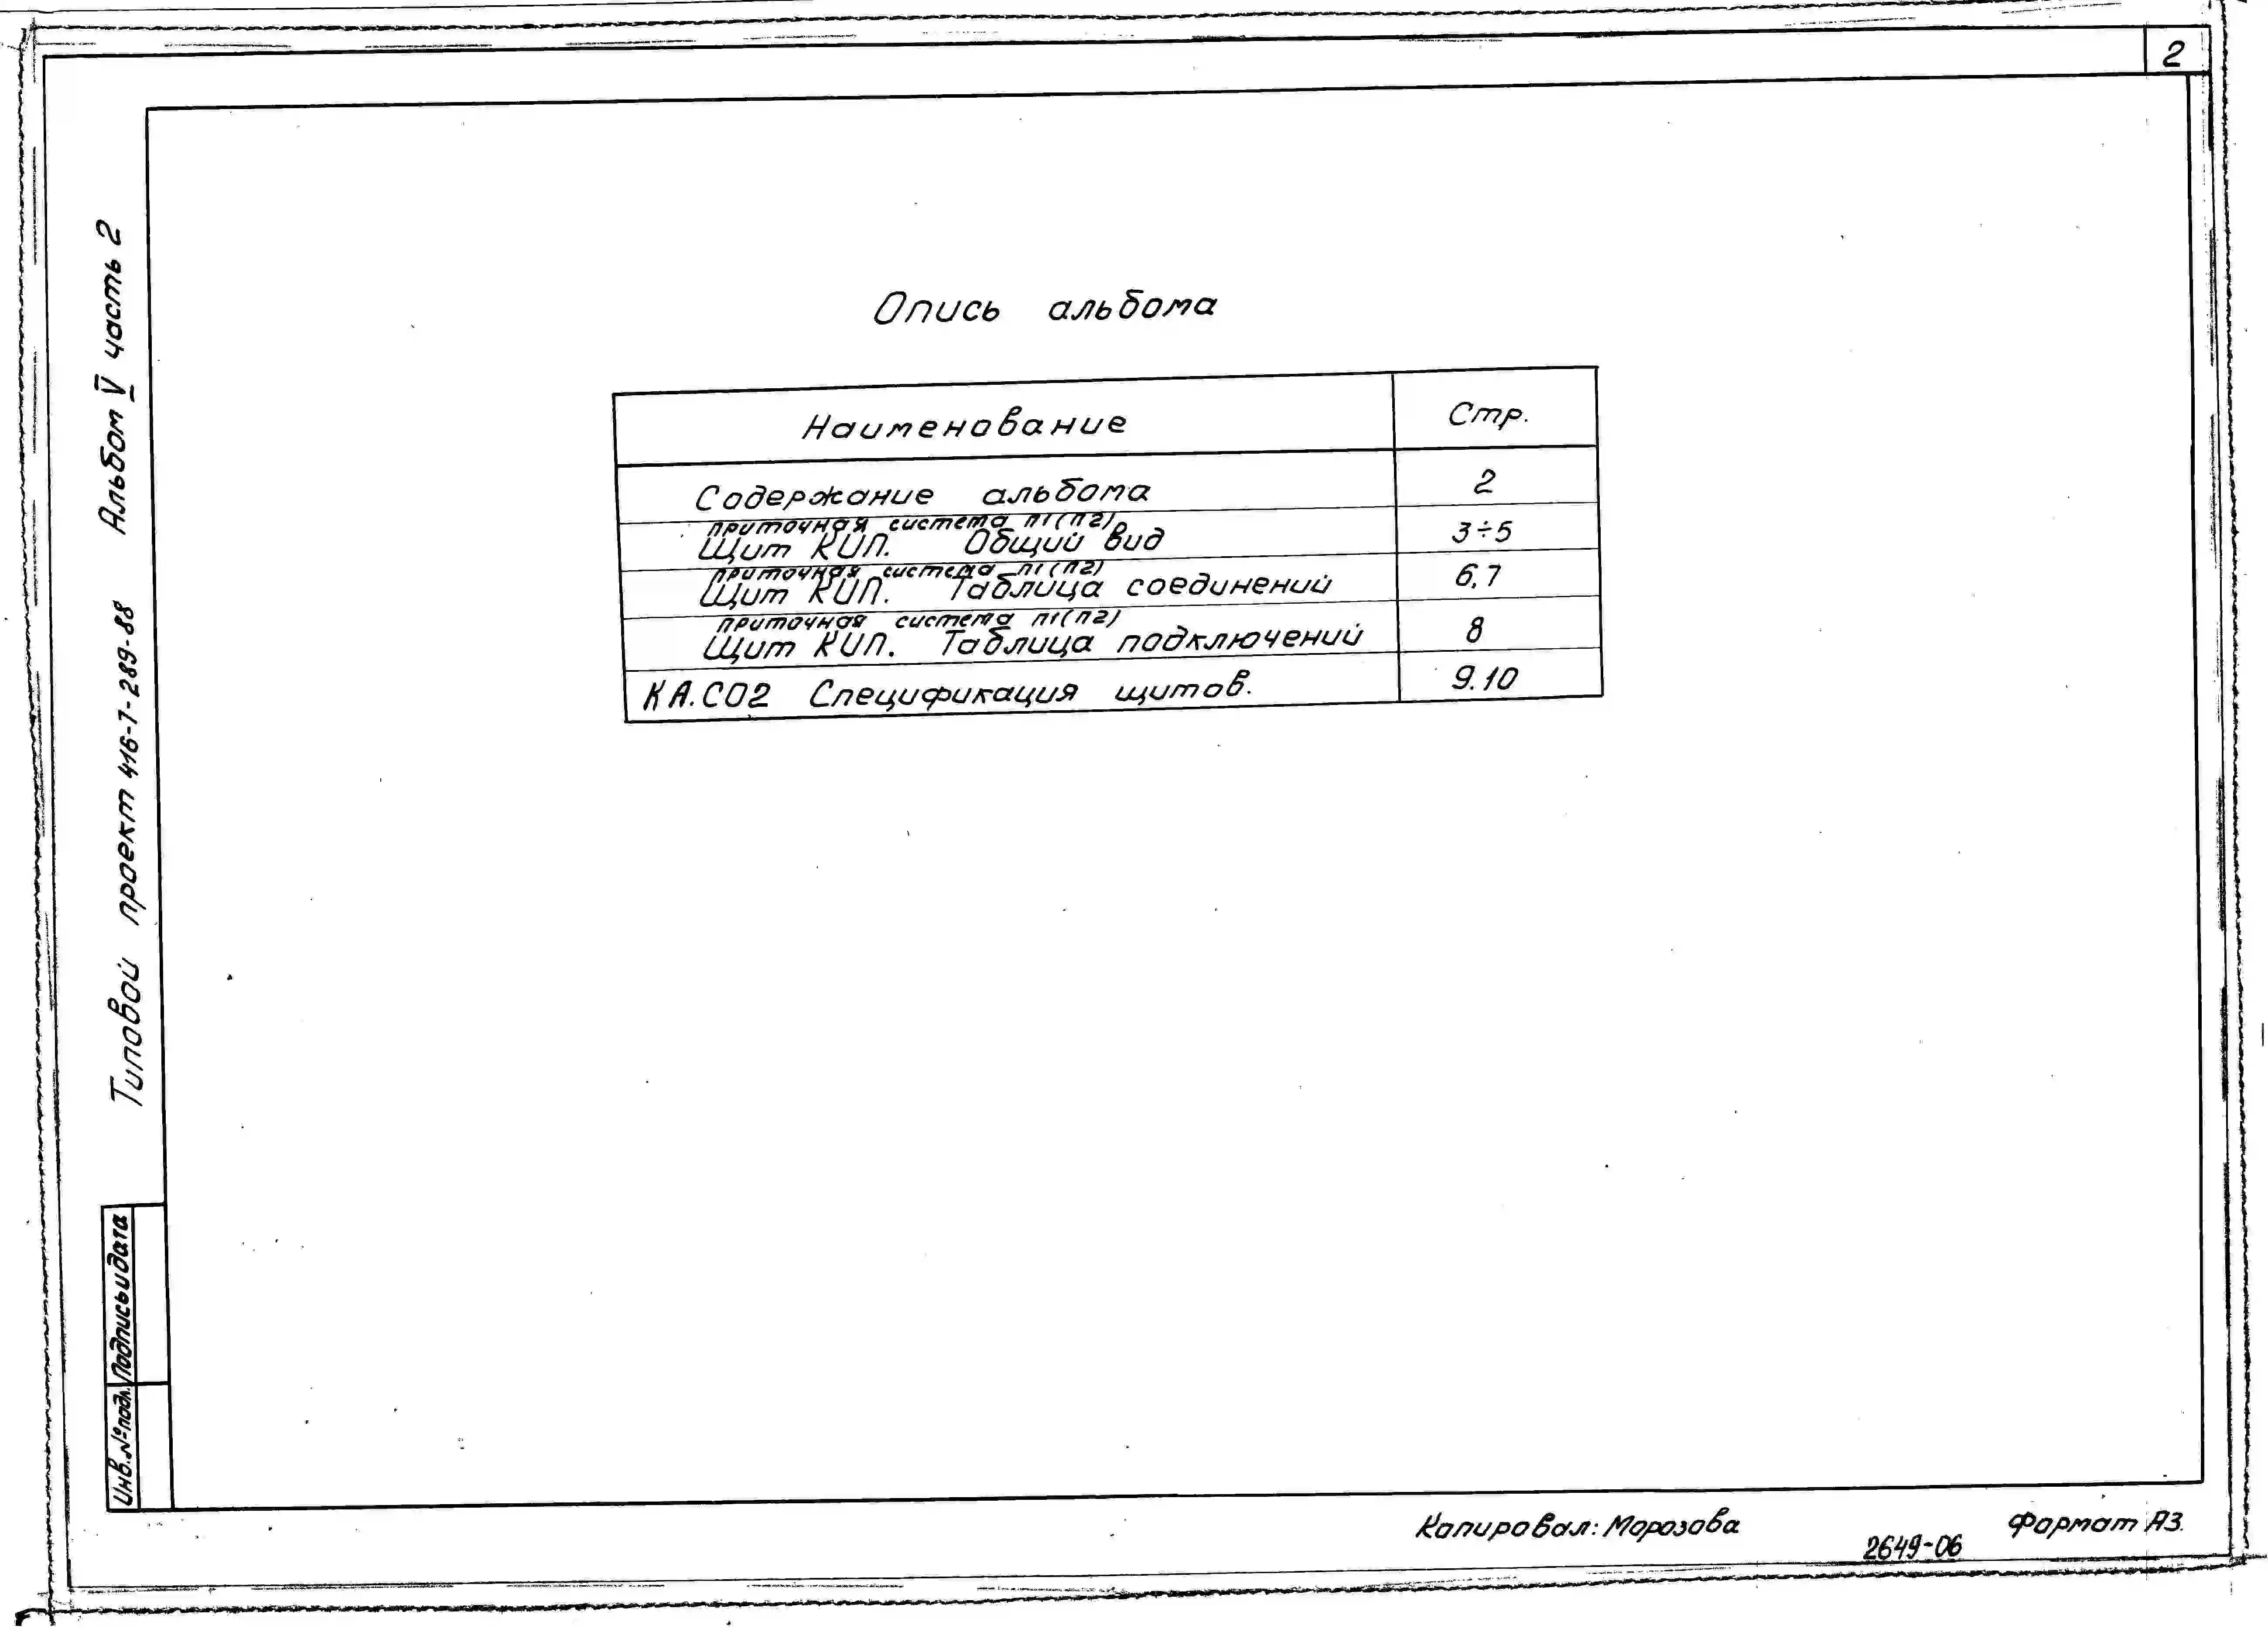 2
Типовой проект 416-7-289-88 Альбом V часть 2
Опись альбома
Наименование Стр.
Содержание альбома 2
приточная система П1(П2)
Щит КИП. Общий вид 3÷5
приточная система П1(П2)
Щит КИП. Таблица соединений 6,7
приточная система П1(П2)
Щит КИП. Таблица подключений 8
КА.СО2 Спецификация щитов. 9.10
Подпись и дата
Инв.№подл.
Копировал: Морозова
2649-06
Формат А3.